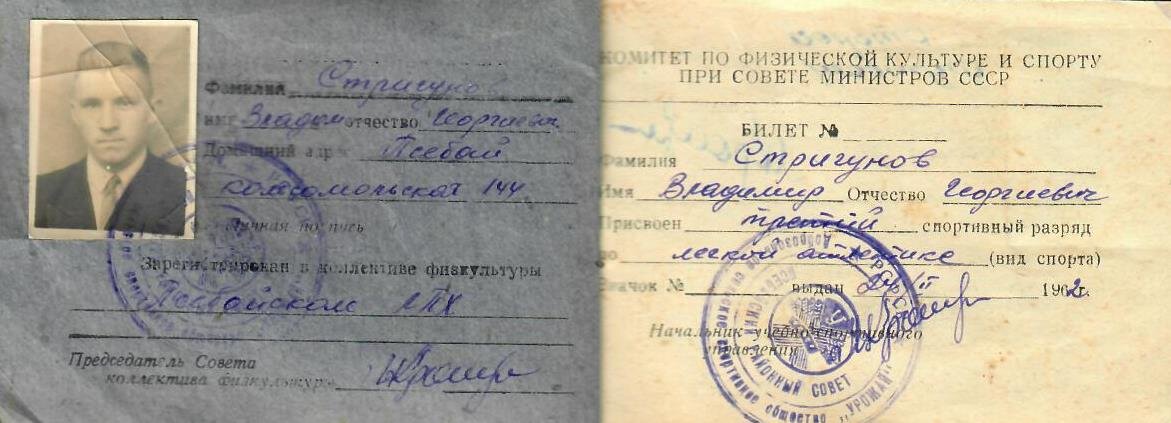 Фамилия Стригунов
имя Владим отчество Георгиевич
Домашний адр Псебай
комсомольская 144
Личная подпись
Зарегистрирован в коллективе физкультуры
Псебайском ЛПХ
Председатель Совета
коллектива физкультуры
КОМИТЕТ ПО ФИЗИЧЕСКОЙ КУЛЬТУРЕ И СПОРТУ
ПРИ СОВЕТЕ МИНИСТРОВ СССР
БИЛЕТ №
Фамилия Стригунов
Имя Владимир Отчество Георгиевич
Присвоен третий спортивный разряд
по легкой атлетике (вид спорта)
Значок № выдан 24/II 1962г.
Начальник учебно-спортивного
управления
РАЙОННЫЙ СОВЕТ
спортивное общество „УРОЖАЙ"